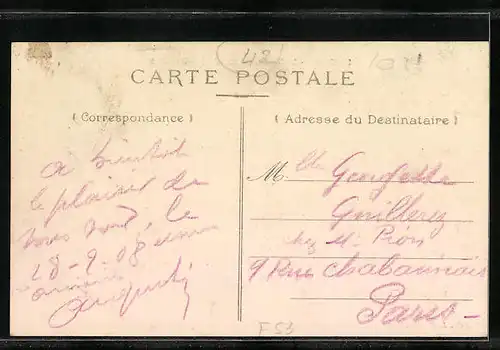 42
CARTE POSTALE
( Correspondance )
( Adresse du Destinataire )
a bientôt
le plaisir de
vous voir, le
28-9-08
Mlle Georgette
Guillerez
chez Mr Piois
9 Rue Chabannais
Paris
F 53